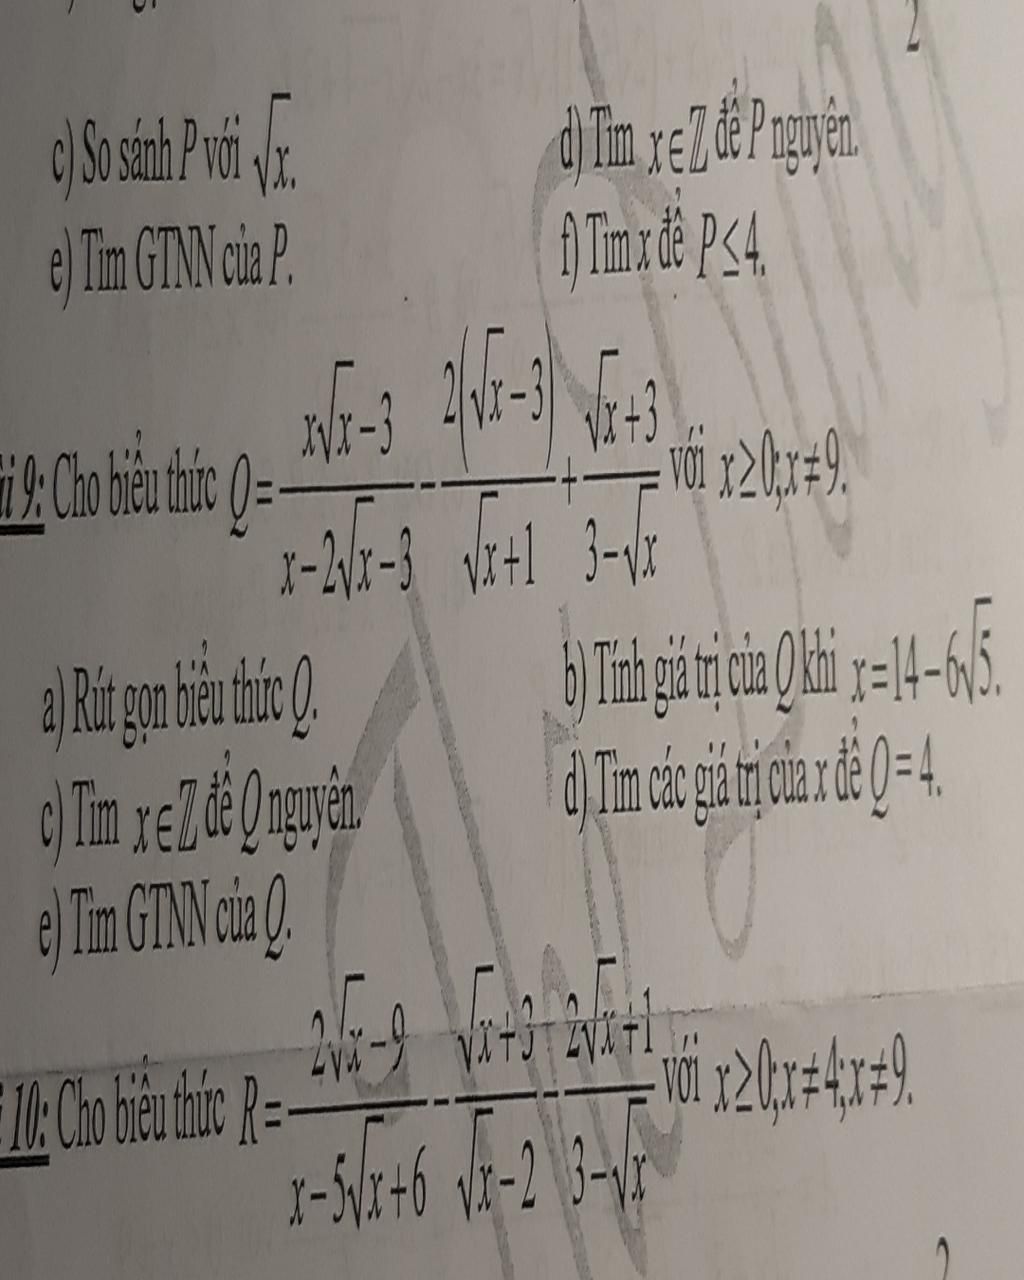 c) So sánh P với √x. d) Tìm x∈ℤ để P nguyên.
e) Tìm GTNN của P. f) Tìm x để P ≤ 4.
i 9: Cho biểu thức Q = (x√x − 3)/(x − 2√x − 3) − 2(√x − 3)/(√x + 1) + (√x + 3)/(3 − √x) với x ≥ 0; x ≠ 9.
a) Rút gọn biểu thức Q. b) Tính giá trị của Q khi x = 14 − 6√5.
c) Tìm x∈ℤ để Q nguyên. d) Tìm các giá trị của x để Q = 4.
e) Tìm GTNN của Q.
10: Cho biểu thức R = (2√x − 9)/(x − 5√x + 6) − (√x + 3)/(√x − 2) − (2√x + 1)/(3 − √x) với x ≥ 0; x ≠ 4; x ≠ 9.